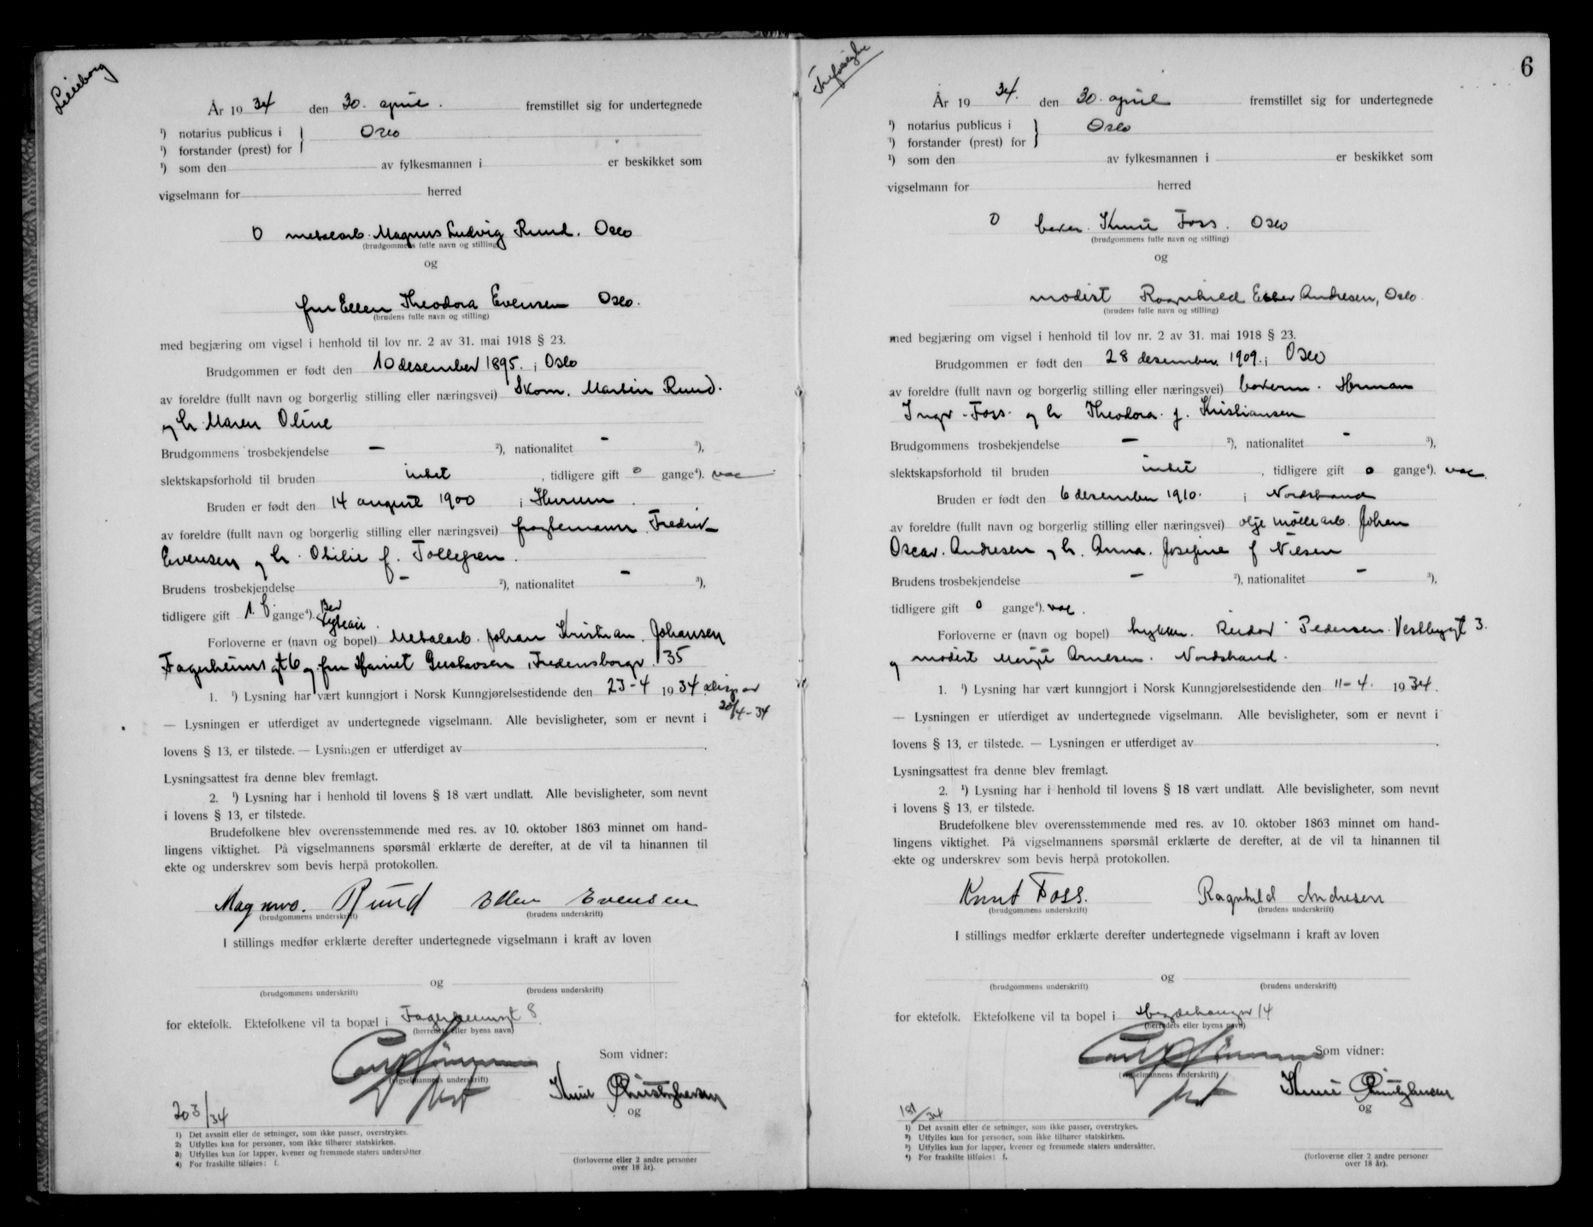 Lilleborg
År 1934 den 30. april. fremstillet sig for undertegnede
¹) notarius publicus i Oslo
¹) forstander (prest) for
¹) som den av fylkesmannen i er beskikket som
vigselmann for herred
0 metalarb. Magnus Ludvig Ruud. Oslo
(brudgommens fulle navn og stilling)
og
fru Ellen Theodora Evensen Oslo.
(brudens fulle navn og stilling)
med begjæring om vigsel i henhold til lov nr. 2 av 31. mai 1918 § 23.
Brudgommen er født den 10 desember 1895. i Oslo
av foreldre (fullt navn og borgerlig stilling eller næringsvei) Skom. Martin Ruud.
og h. Maren Oline
Brudgommens trosbekjendelse — ²), nationalitet - ³),
slektskapsforhold til bruden intet, tidligere gift 0 gange⁴). vac
Bruden er født den 14 august 1900 i Hurum.
av foreldre (fullt navn og borgerlig stilling eller næringsvei) fragtemann Fredrik
Evensen og h. Otilie f. Tollefsen.
Brudens trosbekjendelse — ²), nationalitet - ³),
tidligere gift 1. f. gange⁴). Bev
Forloverne er (navn og bopel) Metalarb. Johan Kristian Johansen
Fagerheimsgt 6 og fru Harriet Gustavsen, Fredensborgv. 35
1. ¹) Lysning har vært kunngjort i Norsk Kunngjørelsestidende den 23-4 1934.
20/4-34
— Lysningen er utferdiget av undertegnede vigselmann. Alle bevisligheter, som er nevnt i
lovens § 13, er tilstede. — Lysningen er utferdiget av
Lysningsattest fra denne blev fremlagt.
2. ¹) Lysning har i henhold til lovens § 18 vært undlatt. Alle bevisligheter, som nevnt
i lovens § 13, er tilstede.
Brudefolkene blev overensstemmende med res. av 10. oktober 1863 minnet om hand-
lingens viktighet. På vigselmannens spørsmål erklærte de derefter, at de vil ta hinannen til
ekte og underskrev som bevis herpå protokollen.
Magnus. Ruud Ellen Evensen
(brudgommens underskrift) (brudens underskrift)
I stillings medfør erklærte derefter undertegnede vigselmann i kraft av loven
og
(brudgommens underskrift) (brudens underskrift)
for ektefolk. Ektefolkene vil ta bopæl i Fagerheimsgt 8.
(herredets eller byens navn)
Som vidner:
(vigselmannens underskrift)
Knut Christophersen
og
203/34
1) Det avsnitt eller de setninger, som ikke passer, overstrykes.
2) Utfylles kun for personer, som ikke tilhører statskirken.
3) Utfylles kun for lapper, kvener og fremmede staters undersåtter
4) For fraskilte tilføies: f.
(forloverne eller 2 andre personer
over 18 år).
6
År 1934. den 30. april fremstillet sig for undertegnede
¹) notarius publicus i Oslo
¹) forstander (prest) for
¹) som den av fylkesmannen i er beskikket som
vigselmann for herred
0 Knut Foss. Oslo
(brudgommens fulle navn og stilling)
og
modist Ragnhild Andresen, Oslo.
(brudens fulle navn og stilling)
med begjæring om vigsel i henhold til lov nr. 2 av 31. mai 1918 § 23.
Brudgommen er født den 28 desember 1909. i Oslo
av foreldre (fullt navn og borgerlig stilling eller næringsvei) Herman
Ingv. Foss. og h Theodora. f. Kristiansen
Brudgommens trosbekjendelse — ²), nationalitet - ³),
slektskapsforhold til bruden intet, tidligere gift 0 gange⁴). vac.
Bruden er født den 6 desember 1910. i Nordstrand
av foreldre (fullt navn og borgerlig stilling eller næringsvei) oljemøllearb. Johan
Oscar. Andresen og h. Anna. Josefine f Nilsen
Brudens trosbekjendelse — ²), nationalitet - ³),
tidligere gift 0 gange⁴). vac.
Forloverne er (navn og bopel) Reidar Pedersen. Vestbygt 3.
og modist Margit Arnesen. Nordstrand.
1. ¹) Lysning har vært kunngjort i Norsk Kunngjørelsestidende den 11-4. 1934.
— Lysningen er utferdiget av undertegnede vigselmann. Alle bevisligheter, som er nevnt i
lovens § 13, er tilstede. — Lysningen er utferdiget av
Lysningsattest fra denne blev fremlagt.
2. ¹) Lysning har i henhold til lovens § 18 vært undlatt. Alle bevisligheter, som nevnt
i lovens § 13, er tilstede.
Brudefolkene blev overensstemmende med res. av 10. oktober 1863 minnet om hand-
lingens viktighet. På vigselmannens spørsmål erklærte de derefter, at de vil ta hinannen til
ekte og underskrev som bevis herpå protokollen.
Knut Foss. Ragnhild Andresen
(brudgommens underskrift) (brudens underskrift)
I stillings medfør erklærte derefter undertegnede vigselmann i kraft av loven
og
(brudgommens underskrift) (brudens underskrift)
for ektefolk. Ektefolkene vil ta bopel i Hegdehaugsv 14
(herredets eller byens navn)
Som vidner:
(vigselmannens underskrift)
Knut Christophersen
og
181/34
¹) Det avsnitt eller de setninger, som ikke passer, overstrykes.
²) Utfylles kun for personer, som ikke tilhører statskirken.
³) Utfylles kun for lapper, kvener og fremmede staters undersåtter.
⁴) For fraskilte tilføies: f.
(forloverne eller 2 andre personer
over 18 år).